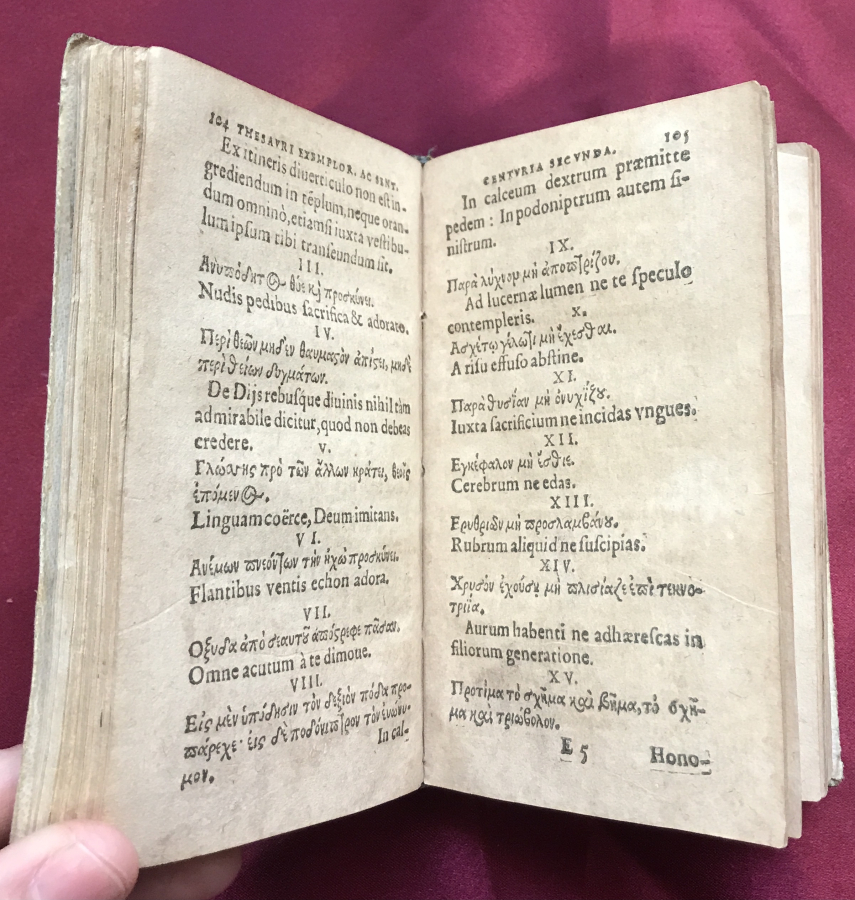 104 THESAVRI EXEMPLOR. AC SENT.
Ex itineris diuerticulo non est in-
grediendum in tẽplum, neque oran-
dum omninò, etiamsi iuxta vestibu-
lum ipsum tibi transeundum sit.
III.
Ανυπόδητος θύε κὶ προσκύνει.
Nudis pedibus sacrifica & adorato.
IV.
Περὶ θεῶν μηδὲν θαυμαςὸν ἀπίςει, μηδὲ
περὶ θείων δογμάτων.
De Dijs rebusque diuinis nihil tàm
admirabile dicitur, quod non debeas
credere.
V.
Γλώσσης πρὸ τῶν ἄλλων κράτει, θεοῖς
ἑπόμενος.
Linguam coërce, Deum imitans.
VI.
Ανέμων πνεόντων τὴν ἠχὼ προσκύνει.
Flantibus ventis echon adora.
VII.
Οξυδα ἀπὸ σεαυτοῦ ἀπόςρεφε πᾶσαν.
Omne acutum à te dimoue.
VIII.
Εἰς μὲν ὑπόδησιν τὸν δεξιὸν πόδα προ-
πάρεχε· εἰς δὲ ποδόνιπτρον τὸν ἐυώνυ-
μον.
In cal-
CENTVRIA SECVNDA. 105
In calceum dextrum præmitte
pedem : In podoniptrum autem si-
nistrum.
IX.
Παρὰ λύχνον μὴ ἀποπτρίζου.
Ad lucernæ lumen ne te speculo
contempleris.
X.
Ασχέτῳ γέλωτι μὴ ἔχεσθαι.
A risu effuso abstine.
XI.
Παρὰ θυσίαν μὴ ὀνυχίζου.
Iuxta sacrificium ne incidas vngues.
XII.
Εγκέφαλον μὴ ἔσθιε.
Cerebrum ne edas.
XIII.
Ερυθριδν μὴ προσλαμβάνου.
Rubrum aliquid ne suscipias.
XIV.
Χρυσὸν ἐχούσῃ μὴ πλισίαζε ἐπὶ τεκνο-
τριΐα.
Aurum habenti ne adhærescas in
filiorum generatione.
XV.
Προτίμα τὸ σχῆμα καὶ βῆμα, τὸ σχῆ-
μα καὶ τριώβολον.
E 5
Hono-